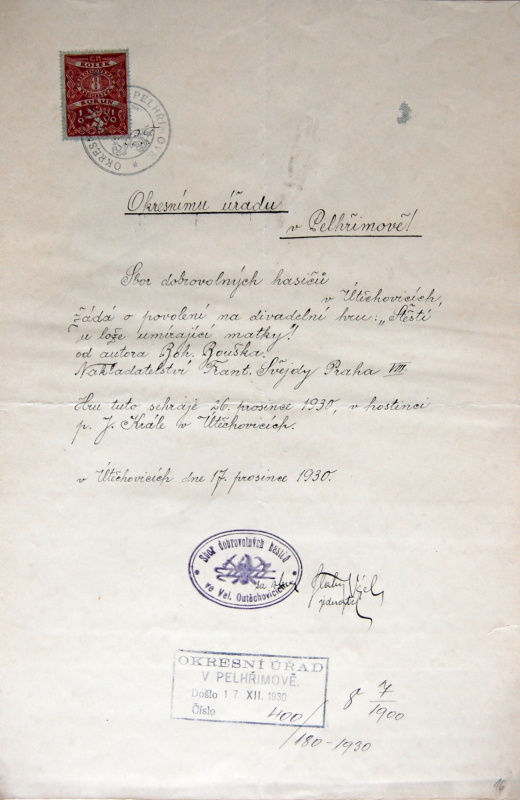 KOLEK
8
KORUN
OKRES PELHŘIMOVĚ
Okresnímu úřadu
v Pelhřimově!
Sbor dobrovolných hasičů
v Útěchovicích,
žádá o povolení na divadelní hru: „Štěstí
u lože umírající matky"!
od autora Boh. Rouška.
Nakladatelství Frant. Švejdy Praha VIII
Hru tuto sehraje 26. prosince 1930, v hostinci
p. J. Krále v Útěchovicích.
v Útěchovicích dne 17. prosince 1930.
Sbor dobrovolných hasičů
ve Vel. Outěchovicích
za
jednatel
OKRESNÍ ÚŘAD
V PELHŘIMOVĚ.
Došlo 17 XII. 1930
Číslo 400/
8 7/1900
/180-1930